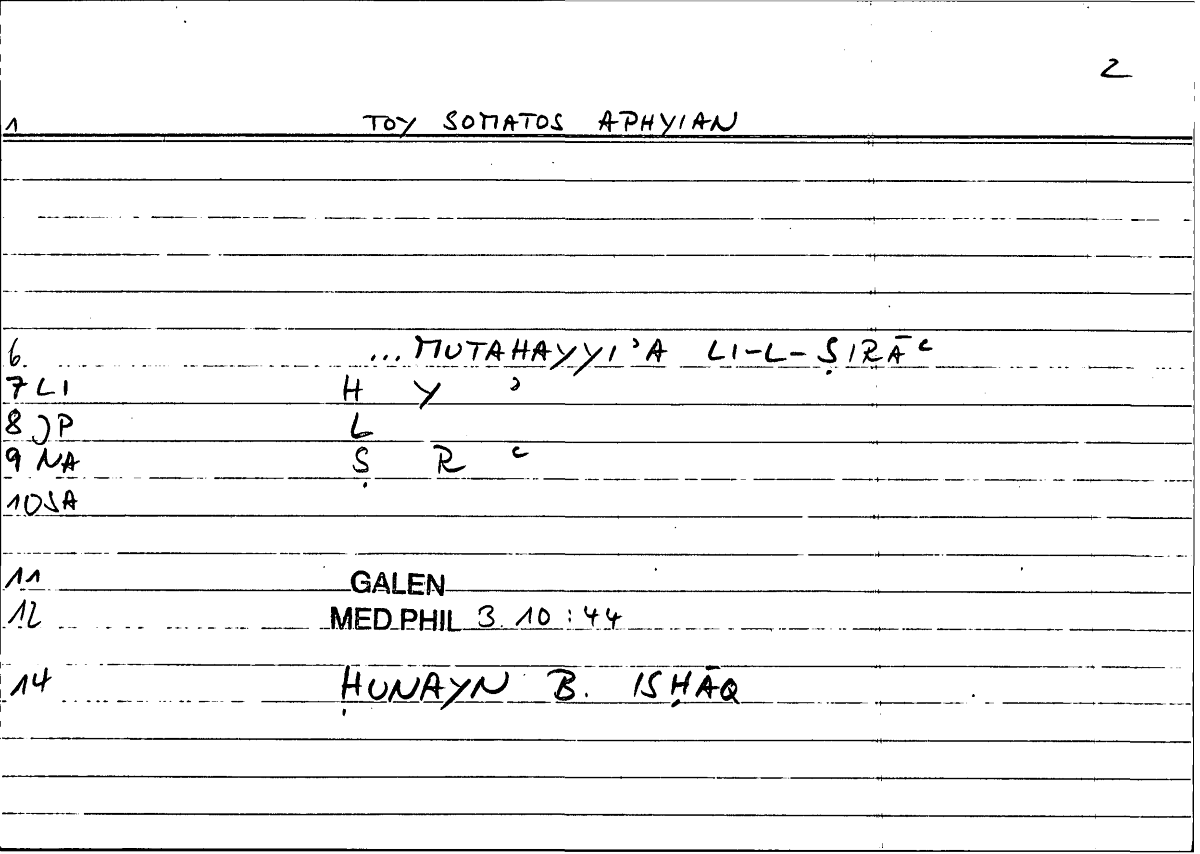 2
1 TOY SOMATOS APHYIAN
6. ...MUTAHAYYIʾA LI-L-ṢIRĀʿ
7 LI H Y ʾ
8 JP L
9 NA Ṣ R ʿ
10 SA
11 GALEN
12 MED PHIL 3 10 : 44
14 ḤUNAYN B. ISḤĀQ